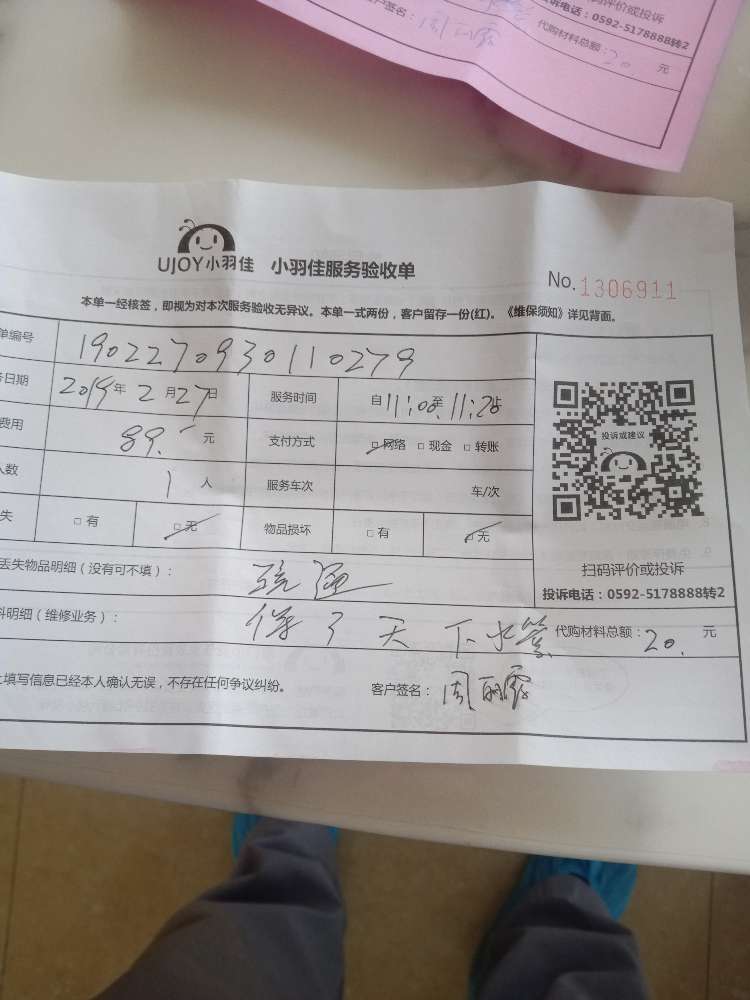 扫码评价或投诉
投诉电话：0592-5178888转2
客户签名：周丽露 代购材料总额：20. 元
UJOY小羽佳 小羽佳服务验收单
No.1306911
本单一经核签，即视为对本次服务验收无异议。本单一式两份，客户留存一份(红)。《维保须知》详见背面。
单编号 1902270930110279
务日期 2019年2月27日 服务时间 自11:00至11:26止
费用 89. 元 支付方式 □网络 □现金 □转账
人数 1人 服务车次 车/次
失 □有 □无 物品损坏 □有 □无
投诉或建议
扫码评价或投诉
投诉电话：0592-5178888转2
丢失物品明细（没有可不填）： 疏通
料明细（维修业务）： 保了天下水管 代购材料总额：20. 元
上填写信息已经本人确认无误，不存在任何争议纠纷。 客户签名：周丽露